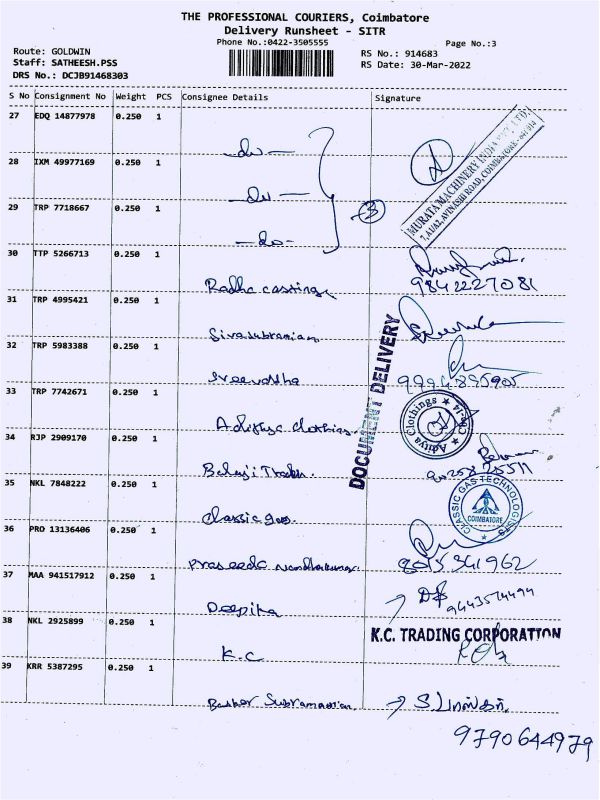 THE PROFESSIONAL COURIERS, Coimbatore
Delivery Runsheet - SITR
Phone No.:0422-3505555
Page No.:3
Route: GOLDWIN
Staff: SATHEESH.PSS
DRS No.: DCJB91468303
RS No.: 914683
RS Date: 30-Mar-2022
S No Consignment No Weight PCS Consignee Details Signature
27 EDQ 14877978 0.250 1
-do-
28 IXM 49977169 0.250 1
-do-
29 TRP 7718667 0.250 1
-do-
3
MURATA MACHINERY INDIA PVT. LTD.
30 TTP 5266713 0.250 1
Radha castings
9842227081
31 TRP 4995421 0.250 1
Sivasubramian
32 TRP 5983388 0.250 1
Sreevatsha
33 TRP 7742671 0.250 1
Adithya Clothing
DOCUMENT DELIVERY
Aditya Clothings
34 RJP 2909170 0.250 1
Balaji
35 NKL 7848222 0.250 1
Classic gas
CLASSIC GAS TECHNOLOGISTS
COIMBATORE
36 PRO 13136406 0.250 1
Praseeda Nandhakumar
37 MAA 941517912 0.250 1
Deepika
9443574494
38 NKL 2925899 0.250 1
K.C
K.C. TRADING CORPORATION
39 KRR 5387295 0.250 1
Basker Subramanian
9790644979